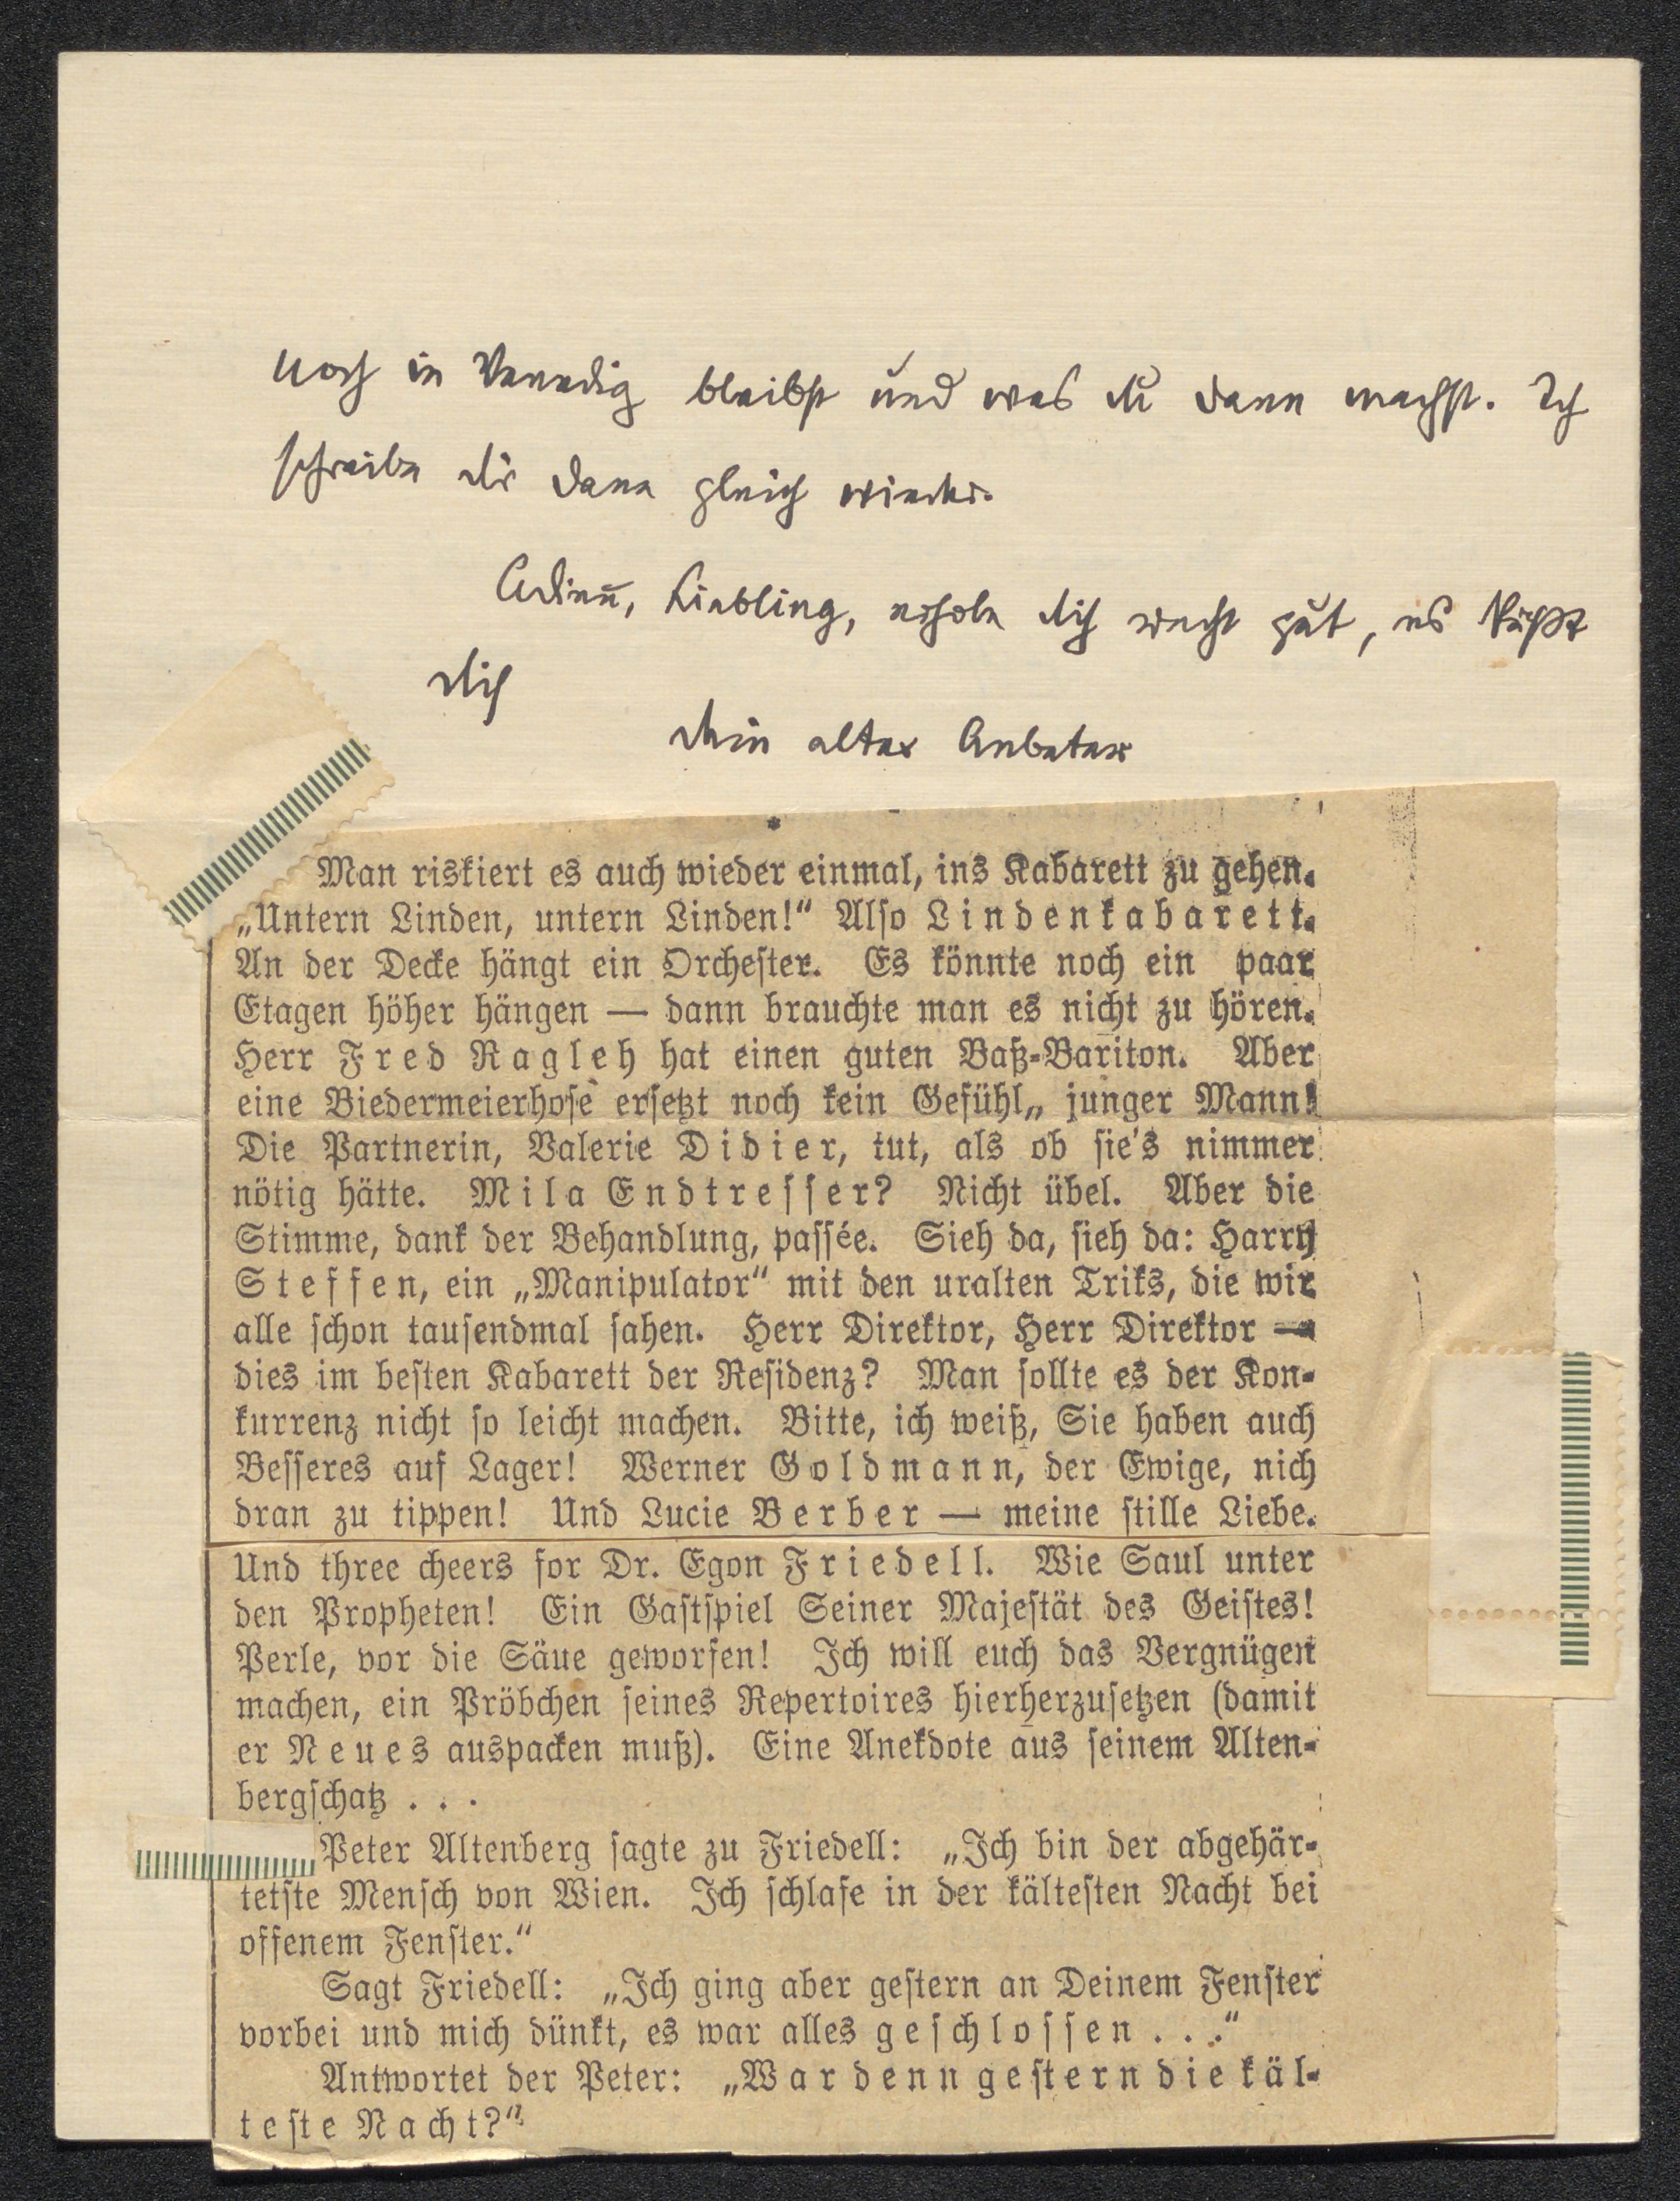 noch in Venedig bleibst und was du dann machst. Ich
schreibe dir dann gleich wieder.
Adieu, Liebling, erhole dich recht gut, es küßt
dich
dein alter Anbeter
*
Man riskiert es auch wieder einmal, ins Kabarett zu gehen.
„Untern Linden, untern Linden!“ Also Lindenkabarett.
An der Decke hängt ein Orchester. Es könnte noch ein paar
Etagen höher hängen — dann brauchte man es nicht zu hören.
Herr Fred Ragleh hat einen guten Baß-Bariton. Aber
eine Biedermeierhose ersetzt noch kein Gefühl„ junger Mann!
Die Partnerin, Valerie Didier, tut, als ob sie's nimmer
nötig hätte. Mila Endtresser? Nicht übel. Aber die
Stimme, dank der Behandlung, passée. Sieh da, sieh da: Harry
Steffen, ein „Manipulator“ mit den uralten Triks, die wir
alle schon tausendmal sahen. Herr Direktor, Herr Direktor —
dies im besten Kabarett der Residenz? Man sollte es der Kon-
kurrenz nicht so leicht machen. Bitte, ich weiß, Sie haben auch
Besseres auf Lager! Werner Goldmann, der Ewige, nich
dran zu tippen! Und Lucie Berber — meine stille Liebe.
Und three cheers for Dr. Egon Friedell. Wie Saul unter
den Propheten! Ein Gastspiel Seiner Majestät des Geistes!
Perle, vor die Säue geworfen! Ich will euch das Vergnügen
machen, ein Pröbchen seines Repertoires hierherzusetzen (damit
er Neues auspacken muß). Eine Anekdote aus seinem Alten-
bergschatz . . .
Peter Altenberg sagte zu Friedell: „Ich bin der abgehär-
tetste Mensch von Wien. Ich schlafe in der kältesten Nacht bei
offenem Fenster.“
Sagt Friedell: „Ich ging aber gestern an Deinem Fenster
vorbei und mich dünkt, es war alles geschlossen . . .“
Antwortet der Peter: „War denn gestern die käl-
teste Nacht?“